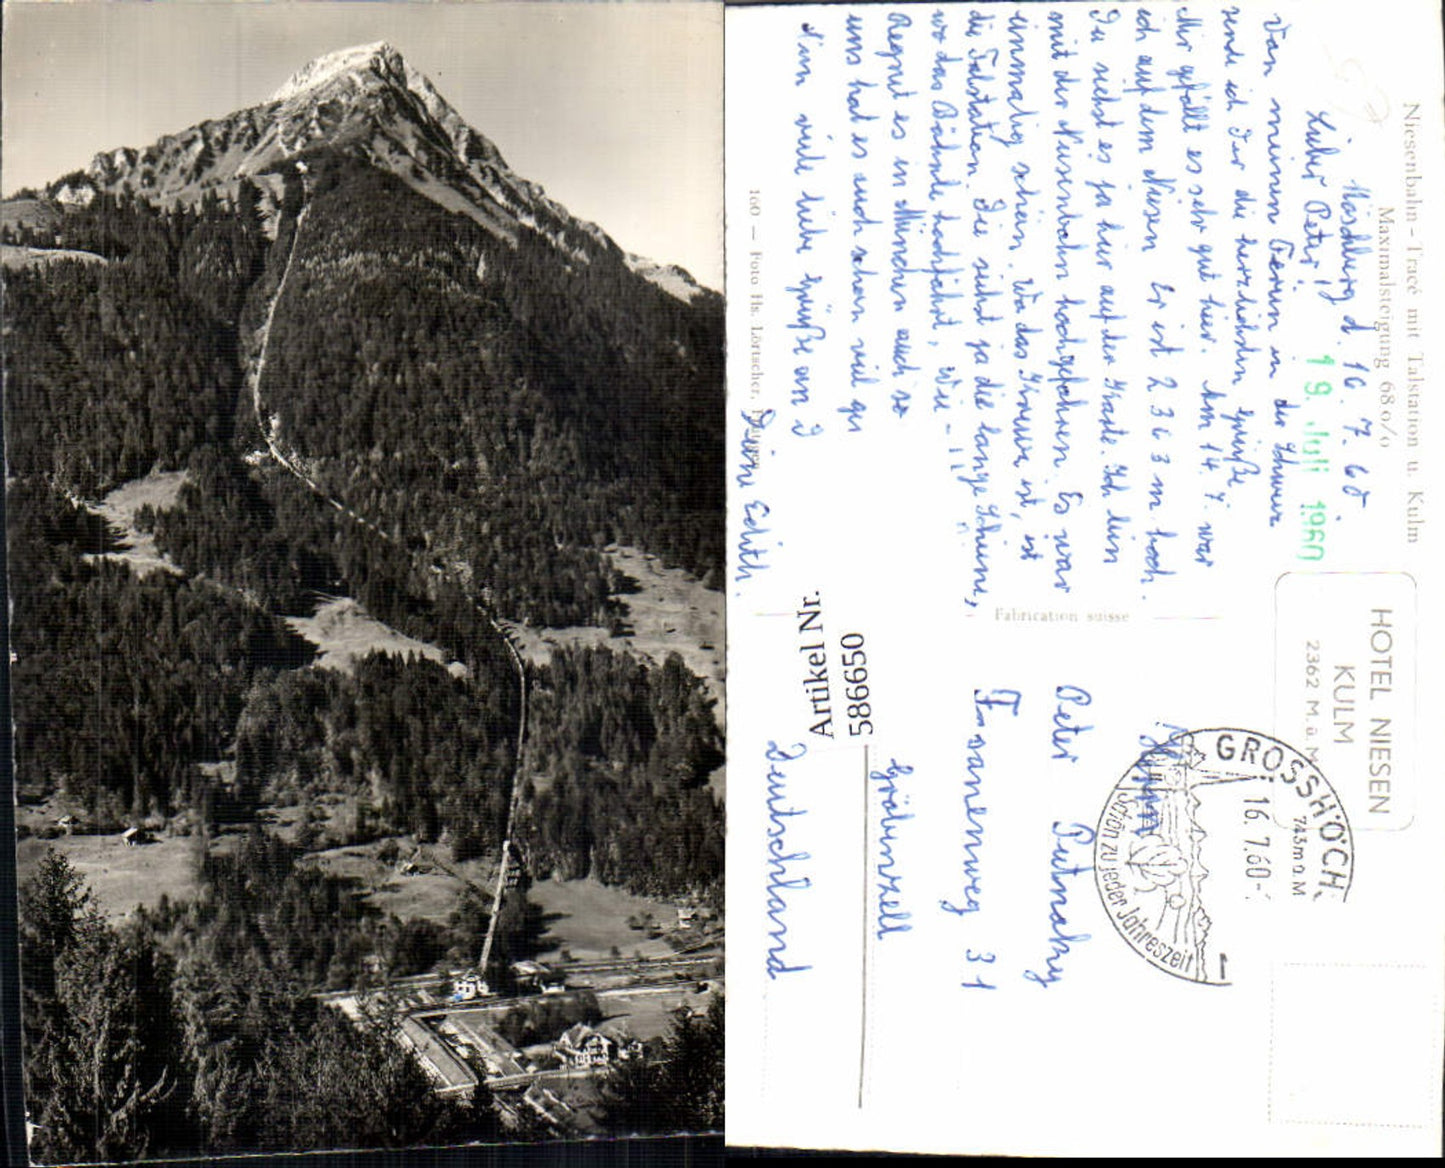 Niesenbahn - Tracé mit Talstation u. Kulm
Maximalsteigung 68 o/o
d. 16. 7. 60.
Lieber Peter!
19. Juli 1960
Von meinen Ferien in der Schweiz
sende ich Dir die herzlichsten Grüße
Mir gefällt es sehr gut hier. Am 14. 7. war
ich auf dem Niesen. Er ist 2 3 6 3 m hoch.
Du siehst es ja hier auf der Karte. Ich bin
mit der Niesenbahn hochgefahren. Es war
einmalig schön. Wo das Kreuz ist, ist
die Talstation. Du siehst ja die lange Schiene,
wo das Bähnle hochfährt, Wie -
Regnet es in München auch so
uns hat es auch schon viel ge
Nun viele liebe Grüße an D
Deine Edith.
160 — Foto Hs. Lörtscher,
Fabrication suisse
HOTEL NIESEN
KULM
2362 M. ü. M
GROSSHÖCH.
743 m ü. M
16. 7. 60 -
Schön zu jeder Jahreszeit
Peter
Fasanenweg 31
Gröbenzell
Deutschland
Artikel Nr.
586650